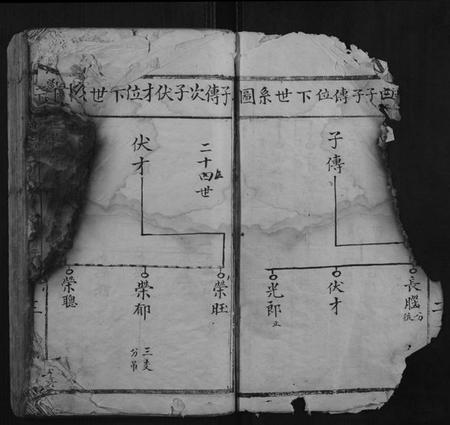 子傳位下世系圖
子傳
長
伏才
光郎
止
子傳次子伏才位下世系
二十四世
伏才
榮旺
榮郁
三支
分
榮聰